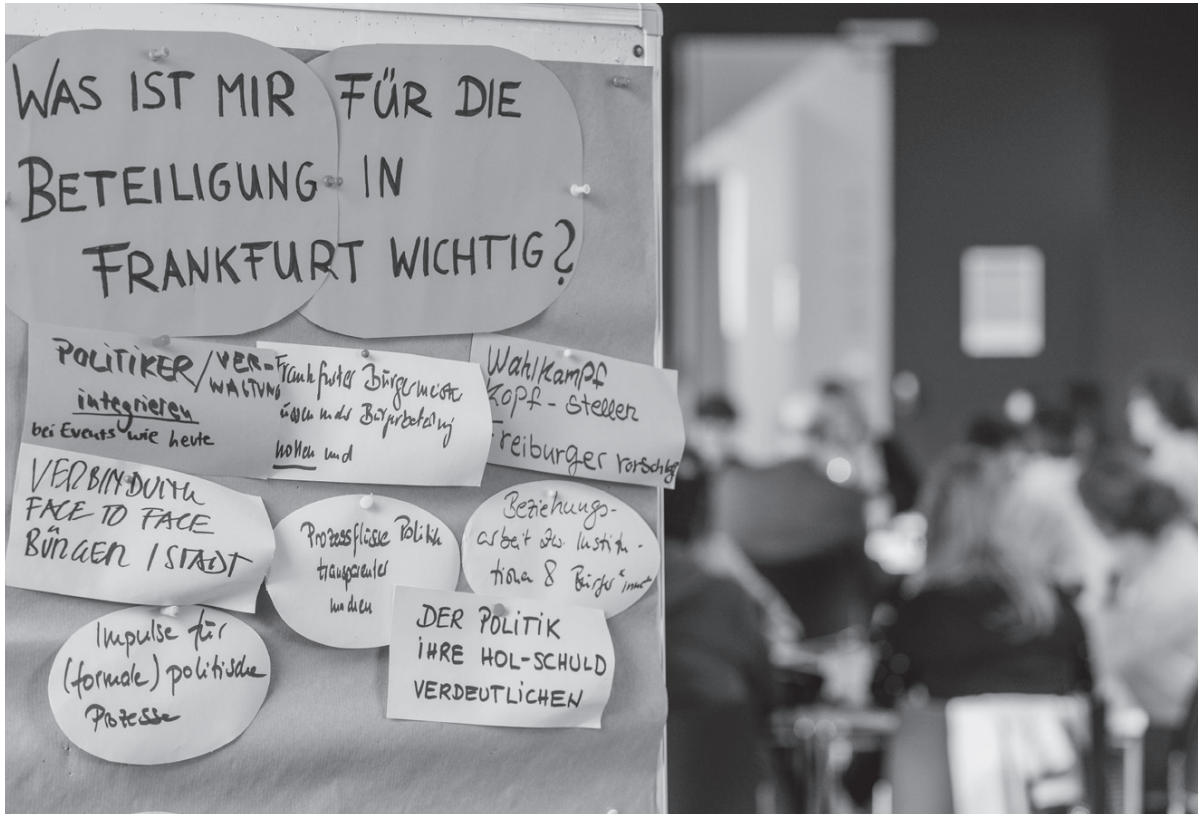 WAS IST MIR FÜR DIE
BETEILIGUNG IN
FRANKFURT WICHTIG?
POLITIKER/VER-
WALTUNG
integrieren
bei Events wie heute
Frankfurter Bürgermeister
Bürgerbeteiligung
wollen und
Wahlkampf
Kopf-Stellen
Freiburger Vorschlag
VERBINDUNG
FACE TO FACE
BÜRGER / STADT
Prozessflüsse Politik
transparenter
machen
Beziehungs-
arbeit zw. Institu-
tionen & Bürger*innen
Impulse für
(formale) politische
Prozesse
DER POLITIK
IHRE HOL-SCHULD
VERDEUTLICHEN